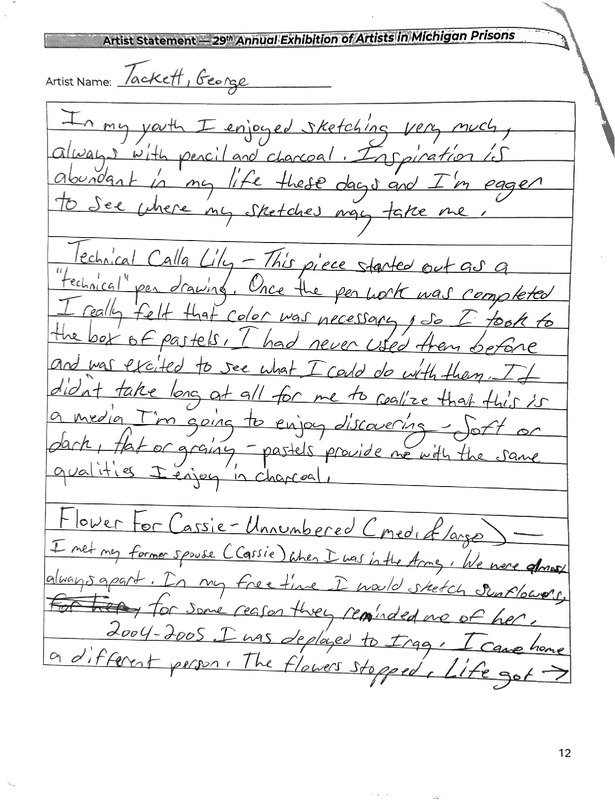 Artist Statement — 29th Annual Exhibition of Artists in Michigan Prisons
Artist Name: Tackett, George
In my youth I enjoyed sketching very much,
always with pencil and charcoal. Inspiration is
abundant in my life these days and I'm eager
to see where my sketches may take me.
Technical Calla Lily - This piece started out as a
"technical" pen drawing. Once the pen work was completed
I really felt that color was necessary, so I took to
the box of pastels. I had never used them before
and was excited to see what I could do with them. It
didn't take long at all for me to realize that this is
a media I'm going to enjoy discovering - Soft or
dark, flat or grainy - pastels provide me with the same
qualities I enjoy in charcoal.
Flower For Cassie - Unnumbered (med. & large) —
I met my former spouse (Cassie) when I was in the Army. We were almost
always apart. In my free time I would sketch sunflowers,
for her, for some reason they reminded me of her.
2004-2005 I was deployed to Iraq. I came home
a different person. The flowers stopped. Life got →
12